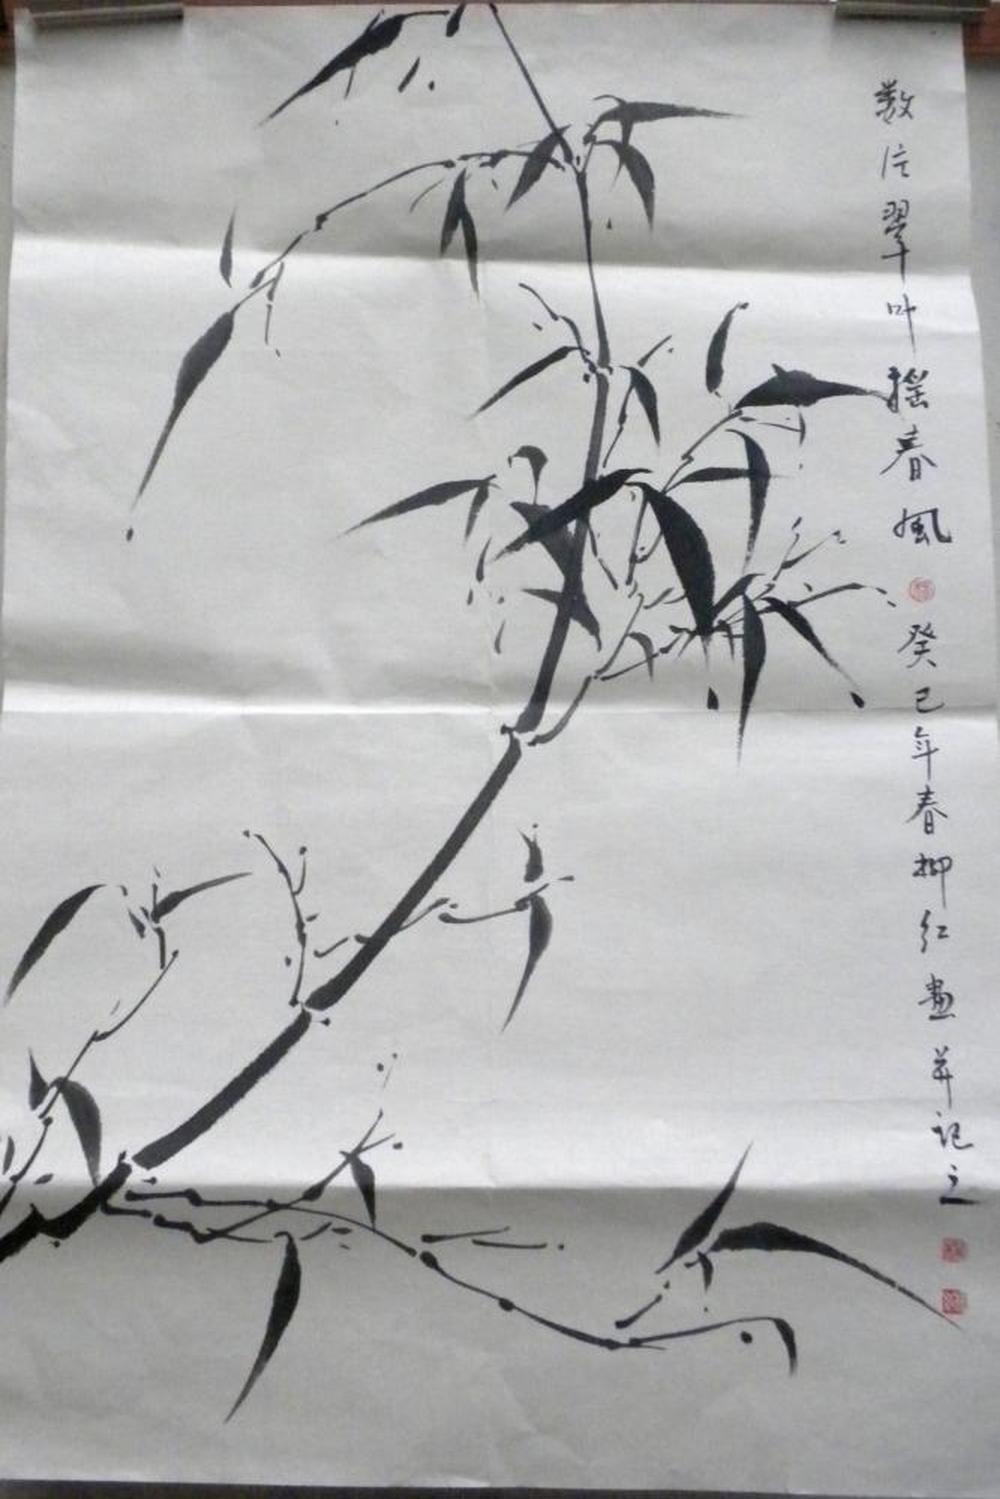 数片翠叶摇春风
癸巳年春柳红画并记之